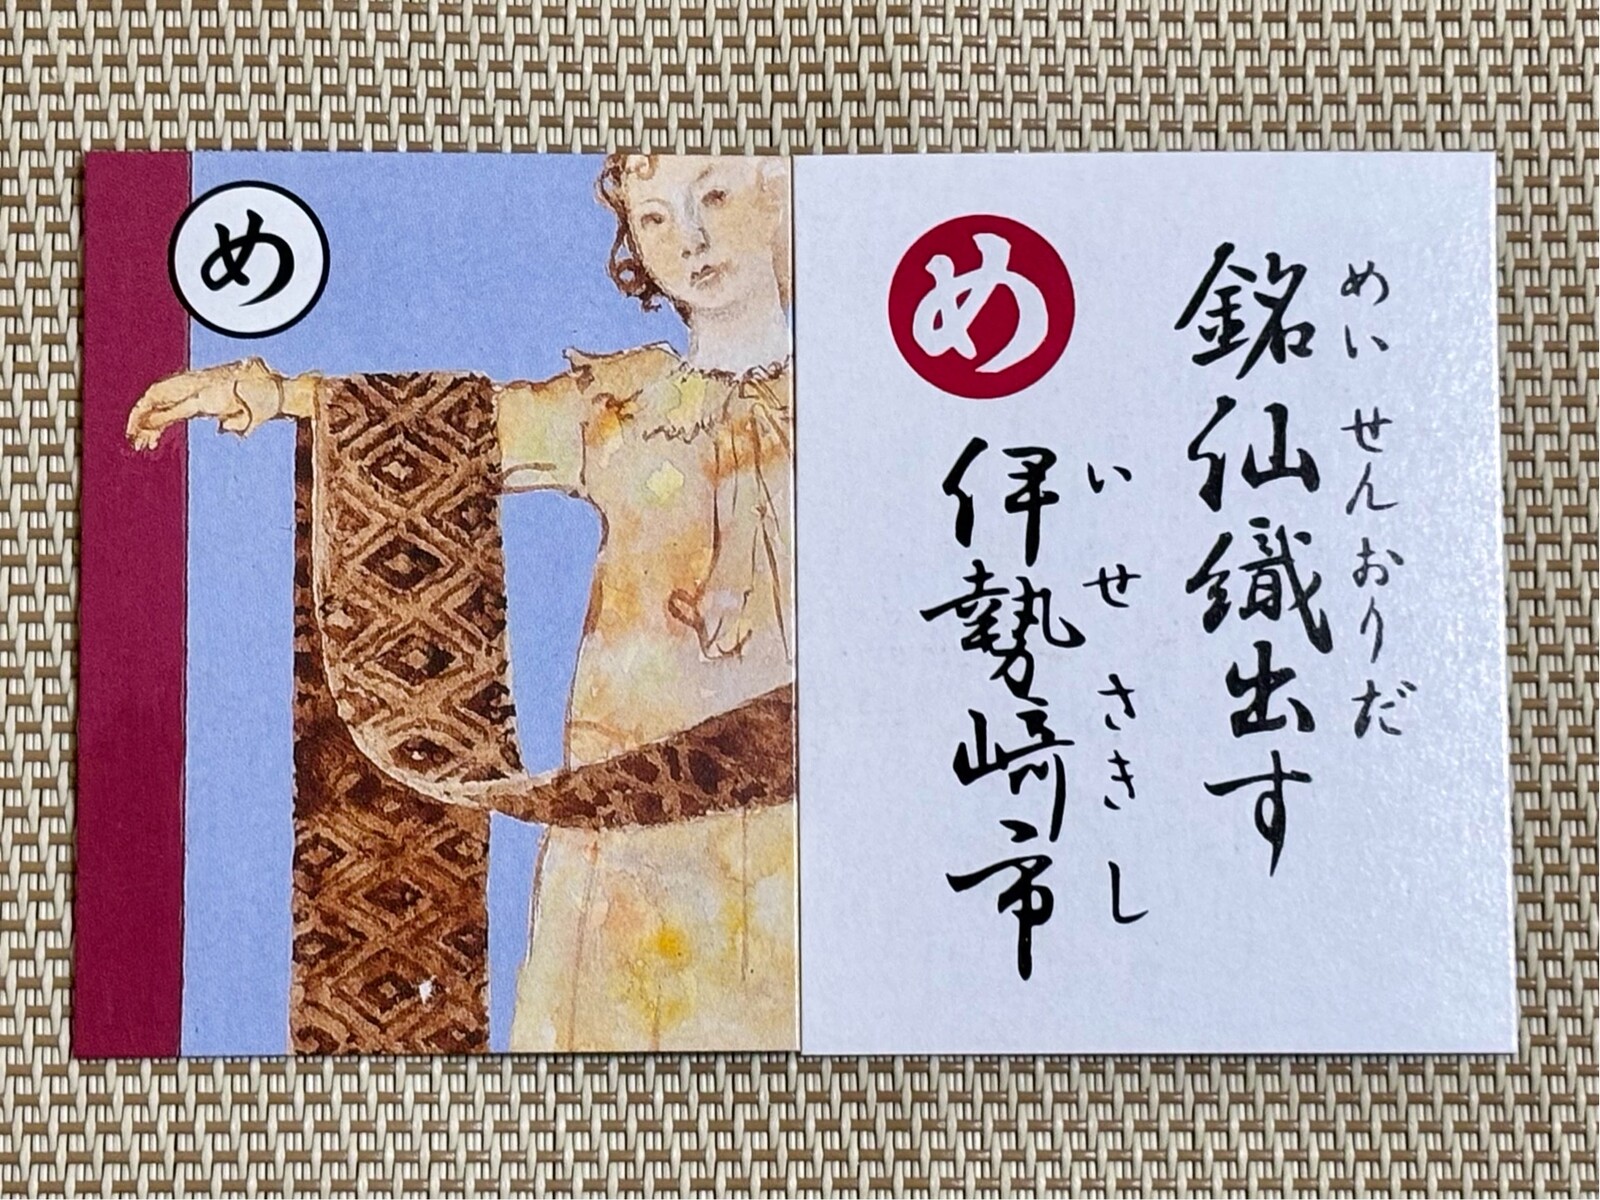 め
め
めいせんおりだ
銘仙織出す
いせさきし
伊勢崎市